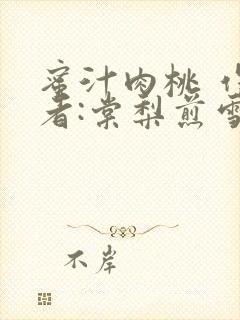 蜜汁肉桃 作
者:棠梨煎雪
不岸